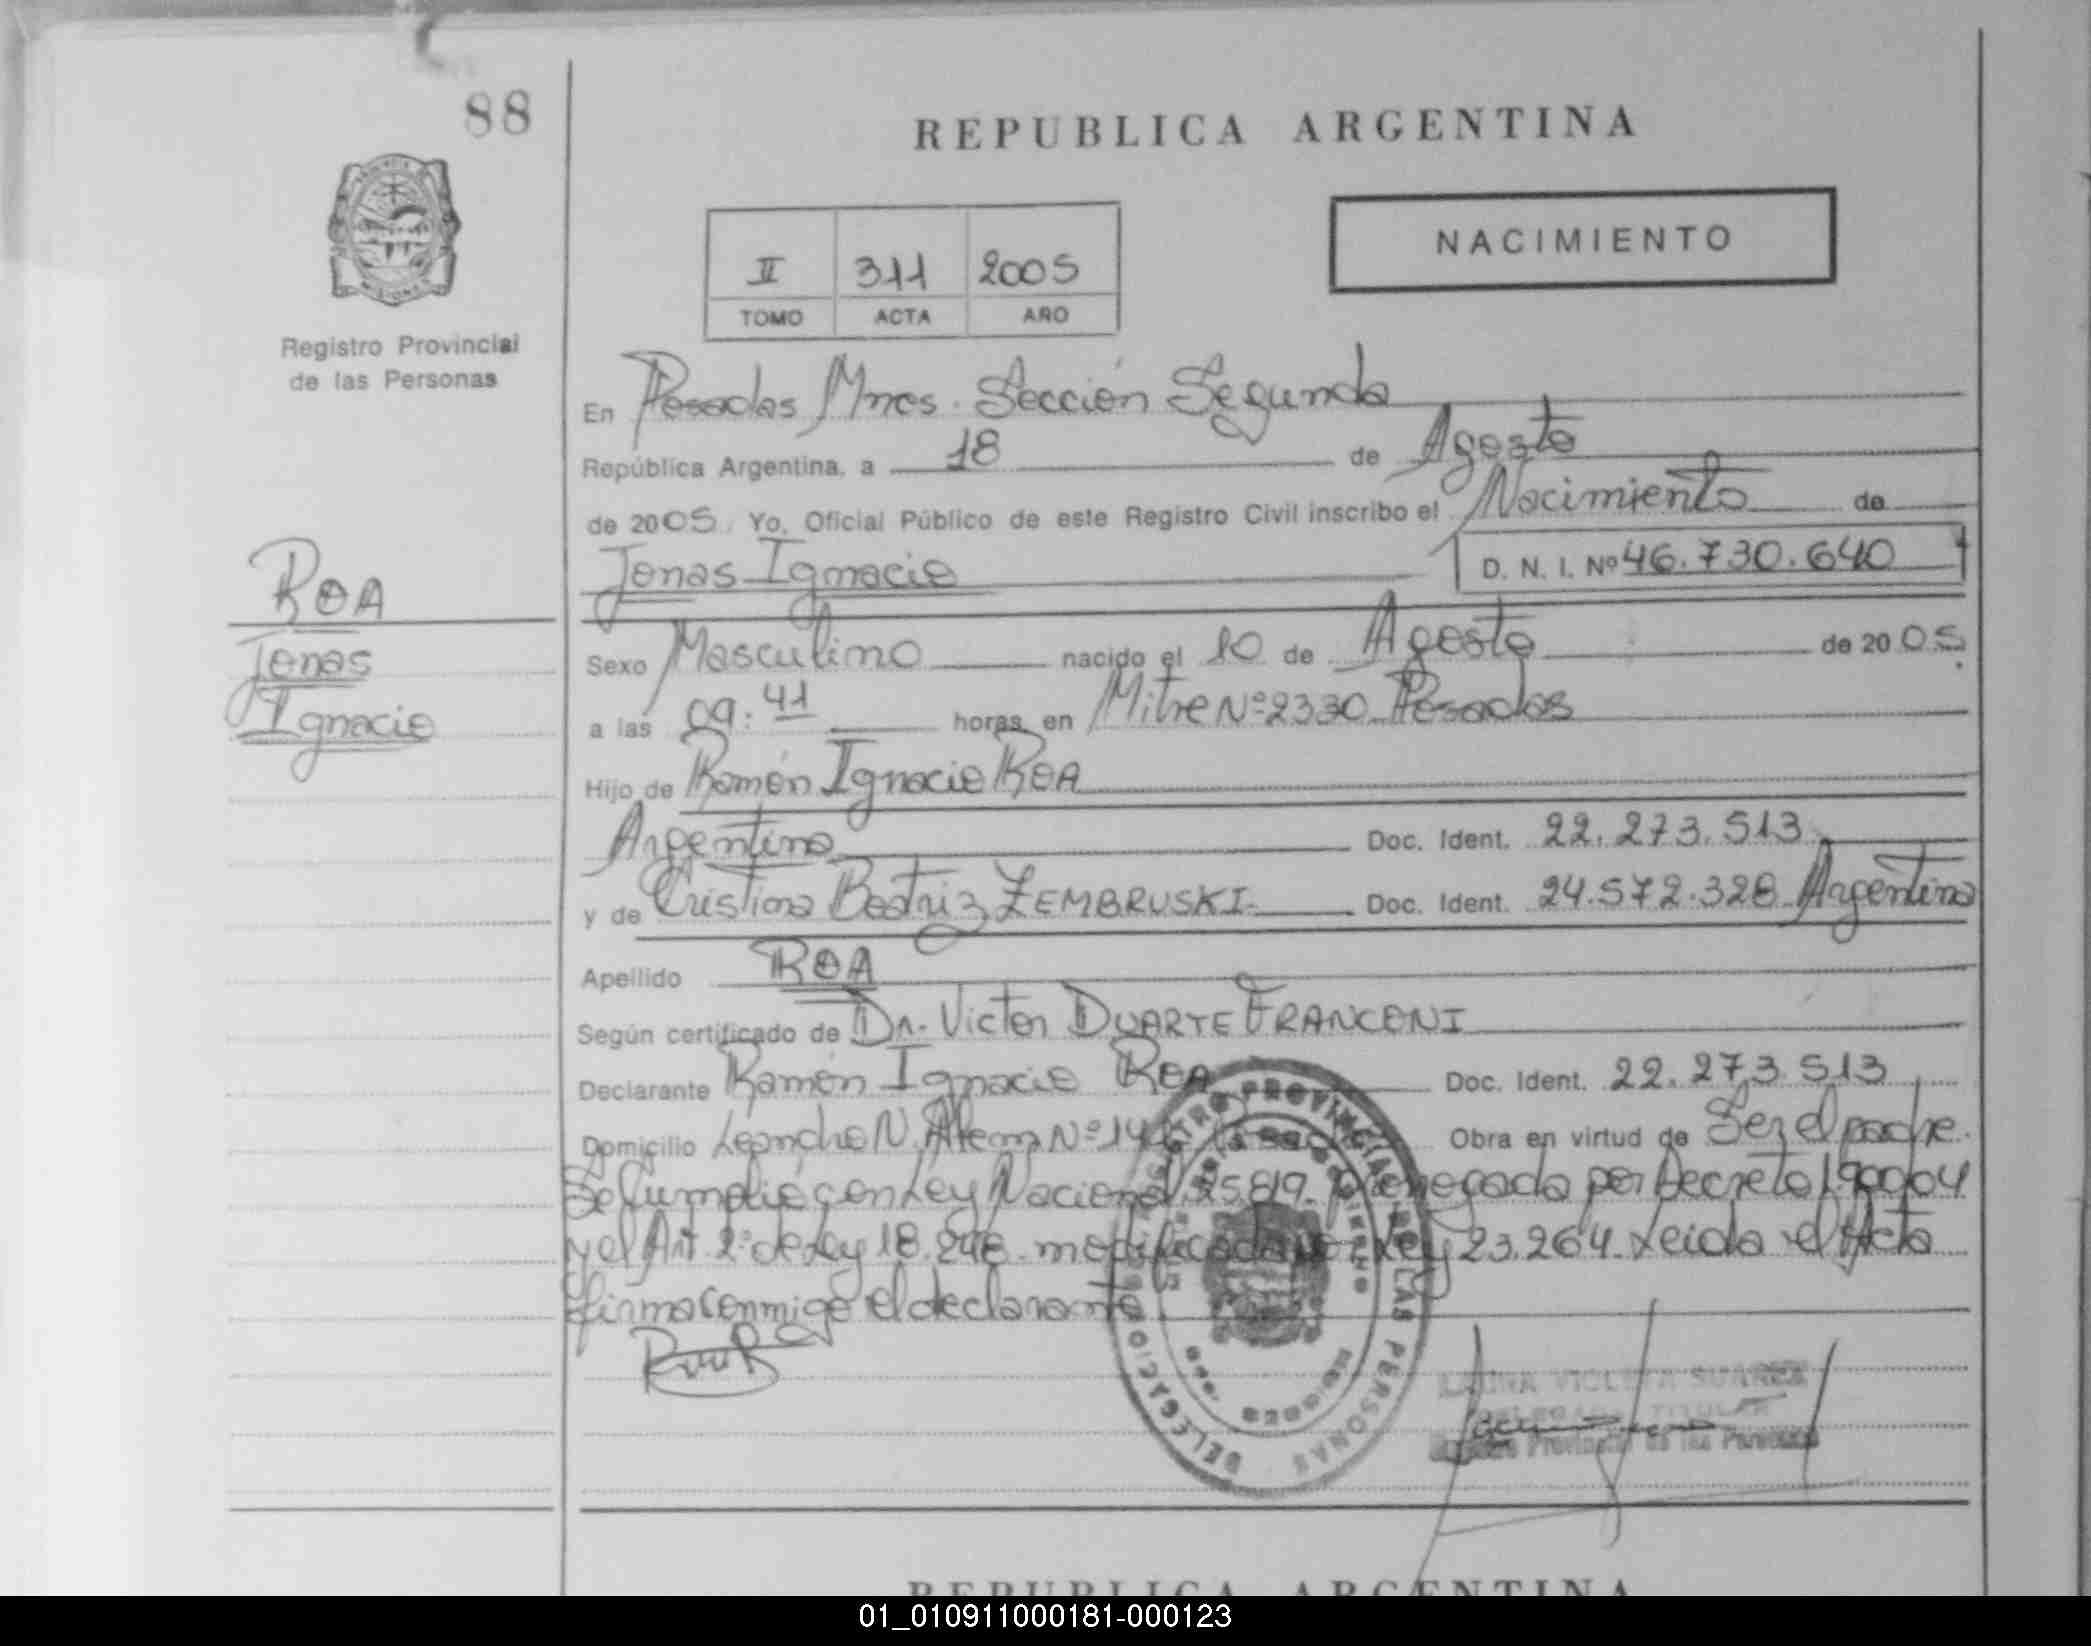 88
REPUBLICA ARGENTINA
NACIMIENTO
II 311 2005
TOMO ACTA AÑO
Registro Provincial
de las Personas
En Posadas Mnes. Sección Segunda
República Argentina, a 18 de Agosto
de 2005. Yo, Oficial Público de este Registro Civil inscribo el Nacimiento de
Jonas Ignacio D. N. I. Nº 46.730.640
ROA
Jonas
Ignacio
Sexo Masculino nacido el 10 de Agosto de 2005
a las 09:41 horas, en Mitre Nº 2330 Posadas
Hijo de Ramón Ignacio ROA
Argentino Doc. Ident. 22.273.513
y de Cristina Beatriz ZEMBRUSKI Doc. Ident. 24.572.328 Argentina
Apellido ROA
Según certificado de Dr. Victor DUARTE FRANCONI
Declarante Ramón Ignacio ROA Doc. Ident. 22.273.513
Domicilio Leandro N. Alem Nº Obra en virtud de Ser el padre.
Se Cumplió con Ley Nacional 25.819 por Decreto
y el Art. 2º de Ley 18.248 modificada Ley 23.264. Leida el Acta
firma conmigo el declarante
REGISTRO PROVINCIAL DE LAS PERSONAS
DELEGACION
MISIONES
LAURA VIOLETA SUAREZ
DELEGADA TITULAR
Registro Provincial de las Personas
REPUBLICA ARGENTINA
01_010911000181-000123